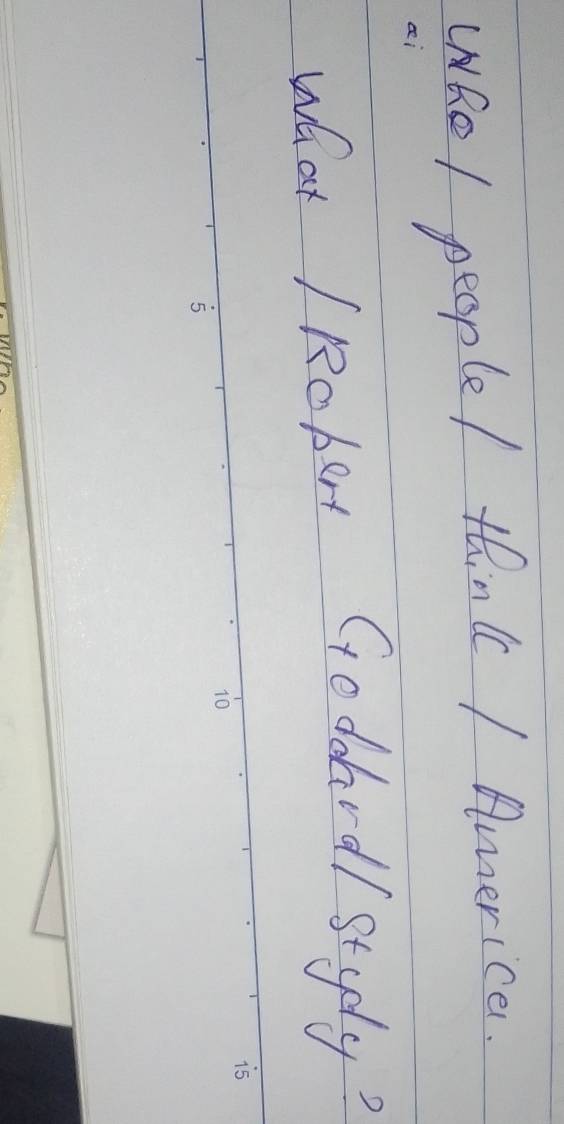 Who / people / think / America.
What / Robert Goddard / study?
5 10 15